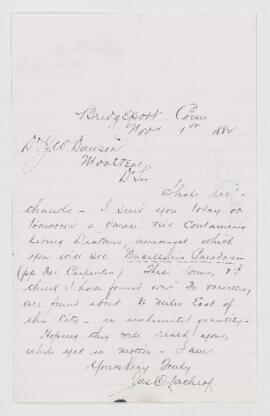 Bridgeport Conn
Nov 1st 1882
Dr J. W. Dawson
Montreal
Dr Sir
I send you today or
tomorrow a containing
living Diatoms, amongst which
you will see Bacillaria Paradoxa
Carpenter) This form, &
think I had found over varieties,
are found about miles East of
this City - in quantity -
Hoping they will reach you,
while yet in motion - I am
Yours very truly
Jas.